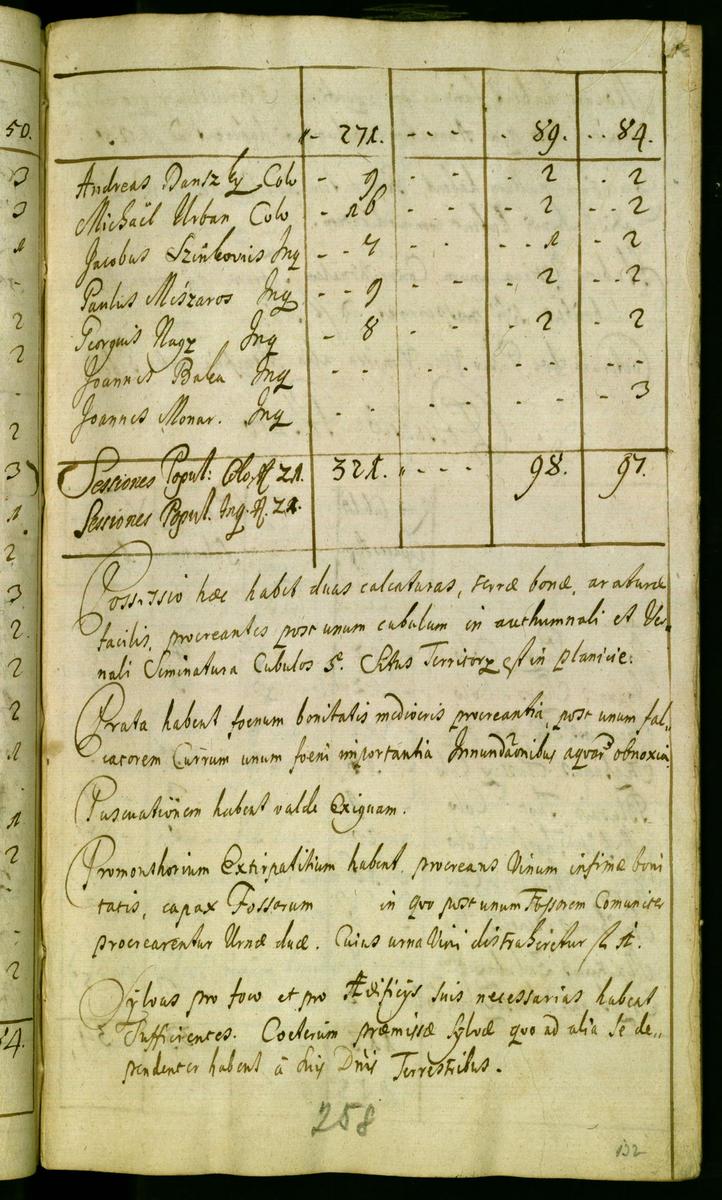 50. „- 271. - - - - 89. - - 84.
3 Andreas Danszky Colo - 9 - - - - 2 - - 2
3 Michaël Urban Colo - 16 - - - - 2 - - 2
1 Jacobus Szinkovics Inq - - 7 - - - - - 1 - 2
- Paulus Mészaros Inq - - 9 - - - - 2 - - 2
2 Georguis Nagy Inq - 8 - - - - 2 - 2
2 Joannes Balea Inq - - - - - - - -
- Joannes Monar. Inq - - - - - - 3
2
3 Sessiones Popul: Colo, 21. 321. „ - - - 98. 97.
1 Sessiones Popul. Inq. 21.
2
Possessio hæc habet duas calcaturas, terræ bonæ, araturæ
3
facilis, procreantes post unum cubulum in authumnali et Ver-
2.
nali Seminatura Cubulos 5. Situs Territory est in planicie.
2
2
Prata habent foenum bonitatis mediocris procreantia, post unum fal-
1
catorem Currum unum foeni importantia Innundãonibus aquar obnoxia.
1
Pascuationem habent valde Exiguam.
2
Promonthorium Extirpatitium habent, procreans Vinum infimæ boni
tatis, capax Fossorum in quo post unum Fossorem Comuniter
-
procrearentur Urnæ duæ. Cuius urna Vini distraheretur
2
Sylvas pro foco et pro Ædificijs suis necessarias habent
54.
Sufficientes. Coeterum præmissæ sylvæ quo ad alia se de-
pendenter habent á suis Dnis Terrestribus.
258
132